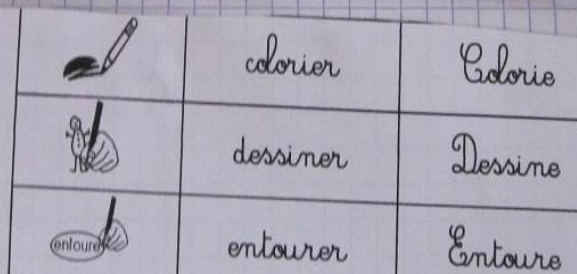 colorier Colorie
dessiner Dessine
entoure entourer Entoure